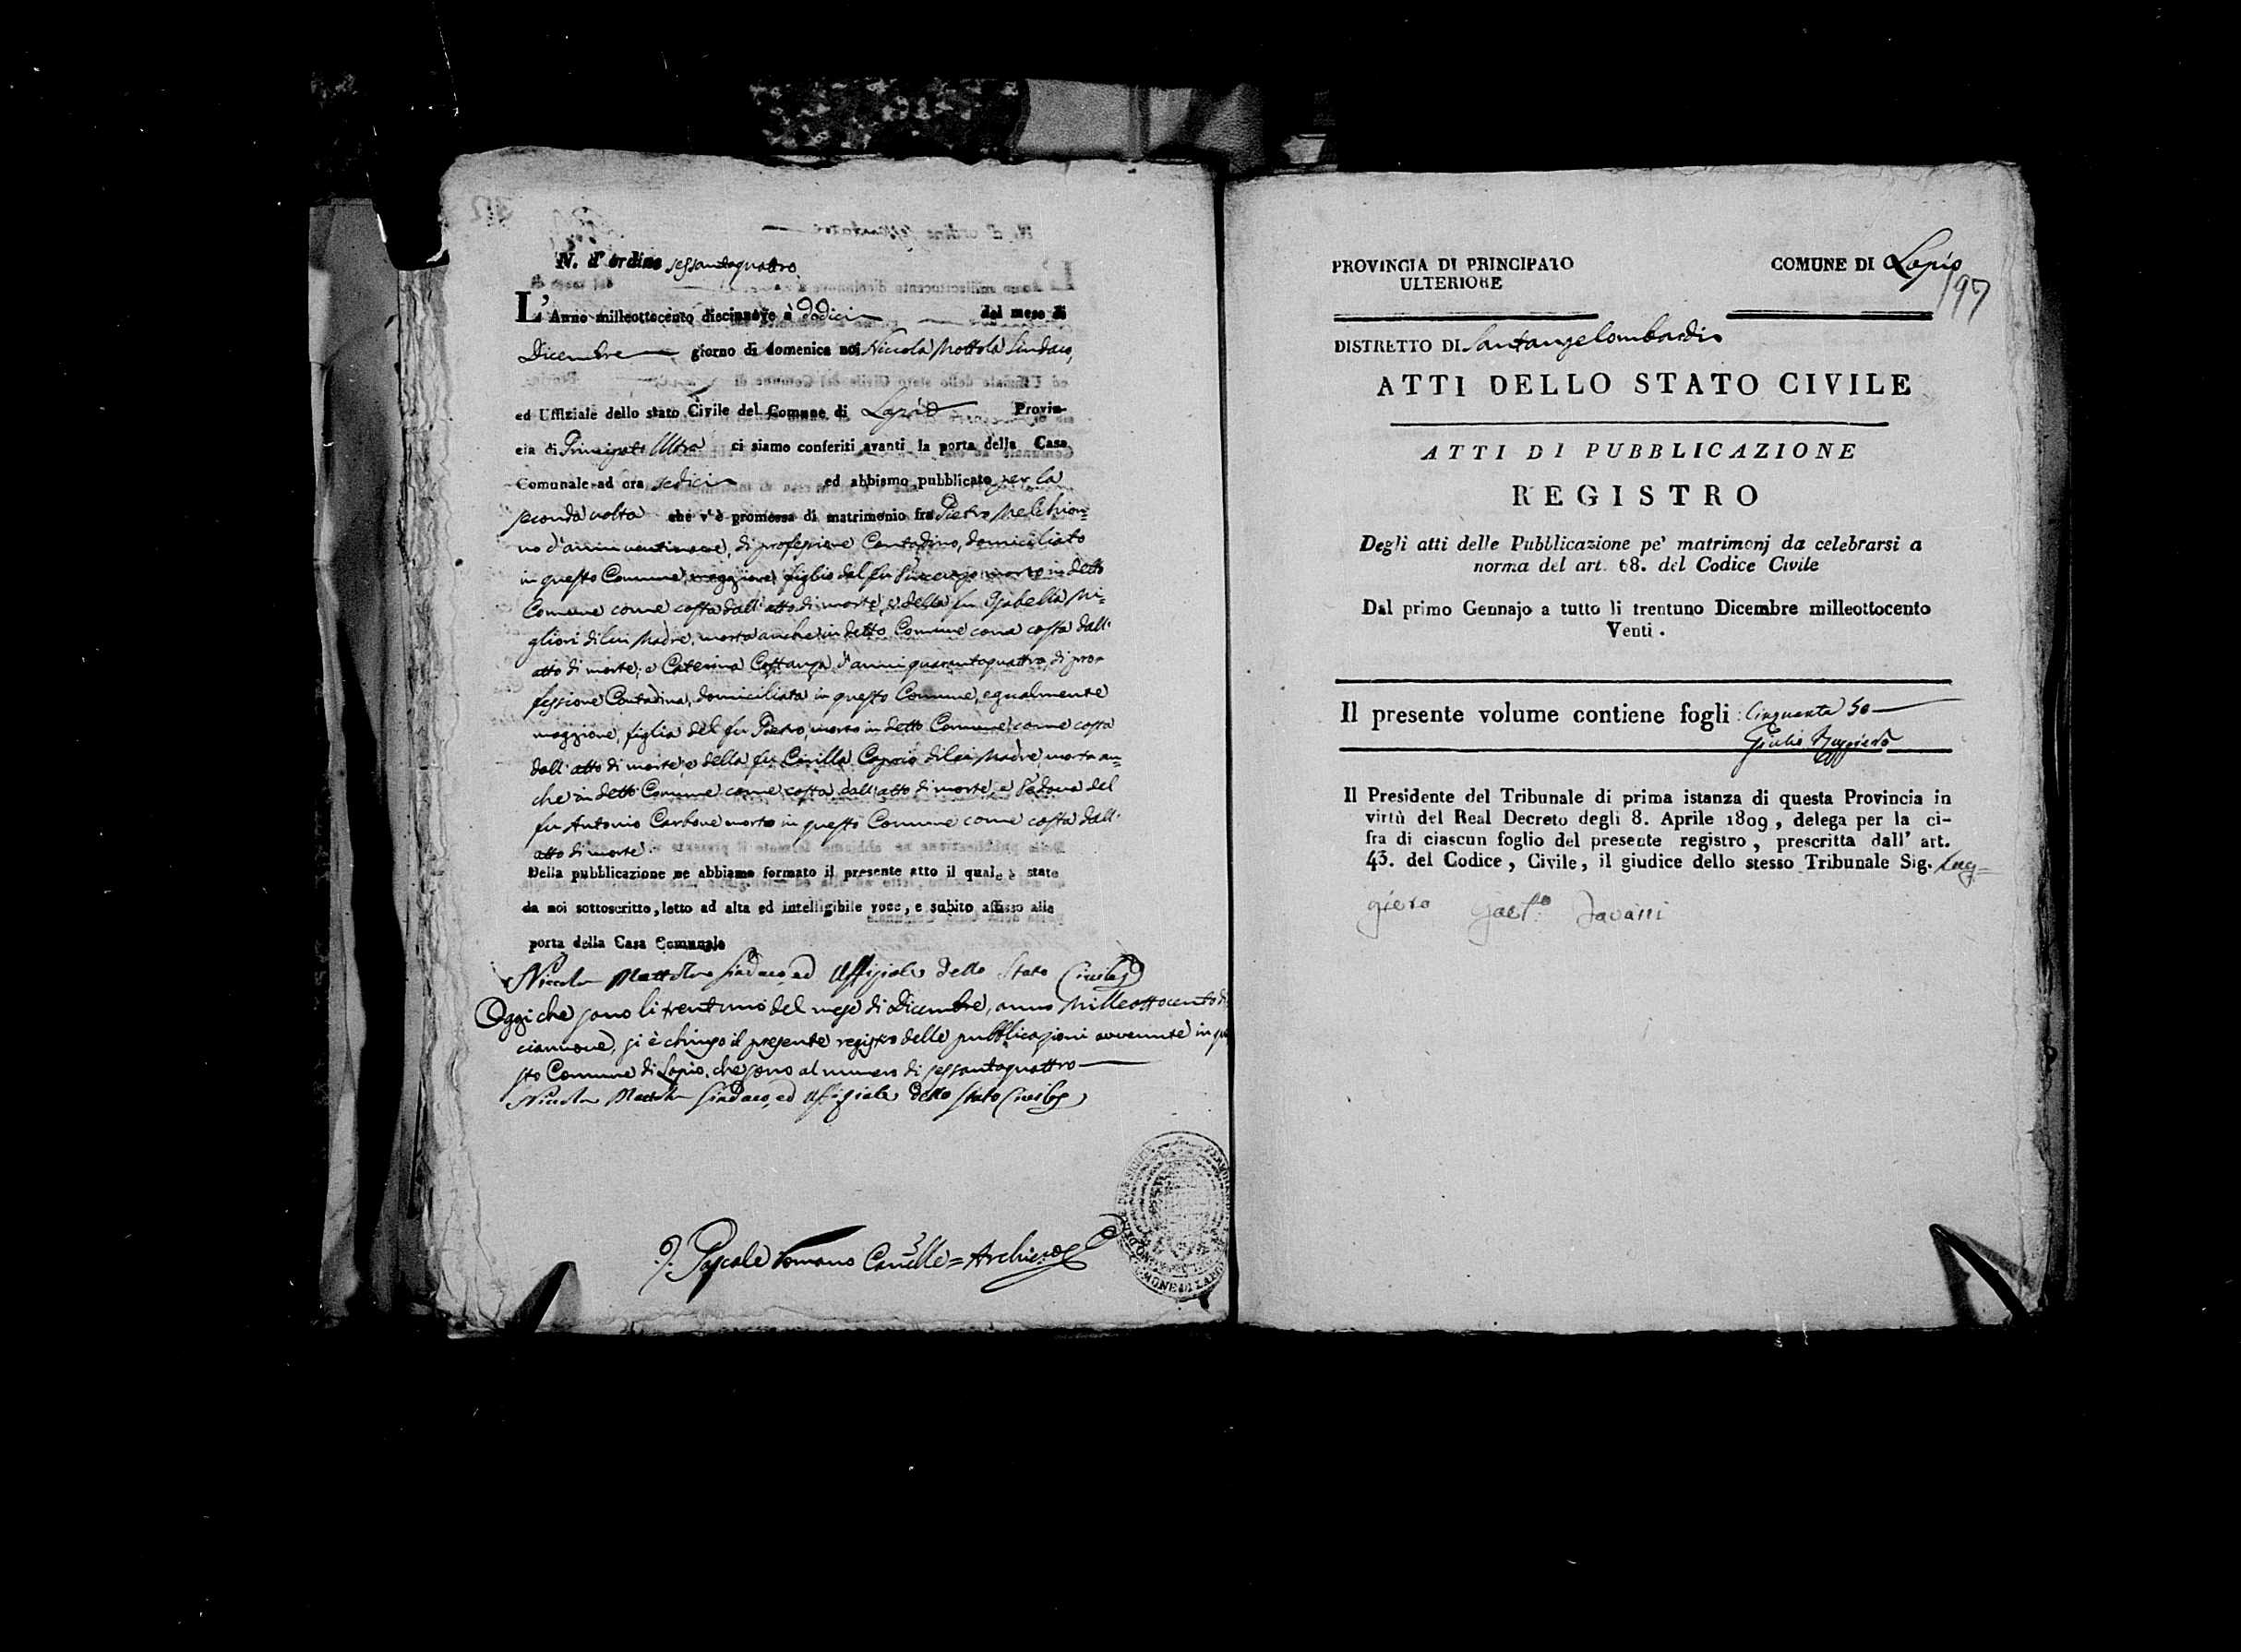 N. d'ordine sessantaquattro.
L'Anno milleottocento diecinnove a dodici del mese di
Dicembre giorno di domenica noi Niccola Mottola Sindaco,
ed Uffiziale dello stato Civile del Comune di Lapio Provin-
cia di Principato Ultra ci siamo conferiti avanti la porta della Casa
Comunale ad ora sedici ed abbiamo pubblicato per la
seconda volta che v'è promessa di matrimonio fra Pietro Melchion-
no d'anni ventinove, di professione Contadino, domiciliato
in questo Comune, maggiore, figlio del fu Vincenzo morto in detto
Comune come costa dall'atto di morte, e della fu Isabella Mi=
gliori di lui Madre, morta anche in detto Comune come costa dall'
atto di morte; e Caterina Costanza, d'anni quarantaquattro, di pro=
fessione Contadina, domiciliata in questo Comune, egualmente
maggiore, figlia del fu Pietro, morto in detto Comune come costa
dall'atto di morte, e della fu Civilla Caprio di lei Madre, morta an=
che in detto Comune come costa dall'atto di morte, e Vedova del
fu Antonio Carbone morto in questo Comune come costa dall'
atto di morte.
Della pubblicazione ne abbiamo formato il presente atto il quale è stato
da noi sottoscritto, letto ad alta ed intelligibile voce, e subito affisso alla
porta della Casa Comunale
Niccola Mottola Sindaco, ed Uffiziale dello Stato Civile
Oggi che sono li trentuno del mese di Dicembre, anno Milleottocento di
ciannove, si è chiuso il presente registro delle pubblicazioni avvenute in que
sto Comune di Lapio, che sono al numero di sessantaquattro
Niccola Mottola Sindaco, ed Uffiziale dello Stato Civile
Pascale Romano Canc.lle = Archiv.
PROVINCIA DI PRINCIPATO
ULTERIORE
COMUNE DI Lapio
197
DISTRETTO DI Santangelombardi
ATTI DELLO STATO CIVILE
ATTI DI PUBBLICAZIONE
REGISTRO
Degli atti delle Pubblicazione pe' matrimonj da celebrarsi a
norma del art. 68. del Codice Civile
Dal primo Gennajo a tutto li trentuno Dicembre milleottocento
Venti.
Il presente volume contiene fogli: Cinquanta 50
Giulio Ruggiero
Il Presidente del Tribunale di prima istanza di questa Provincia in
virtù del Real Decreto degli 8. Aprile 1809, delega per la ci-
fra di ciascun foglio del presente registro, prescritta dall' art.
43. del Codice, Civile, il giudice dello stesso Tribunale Sig.
Gaet.no